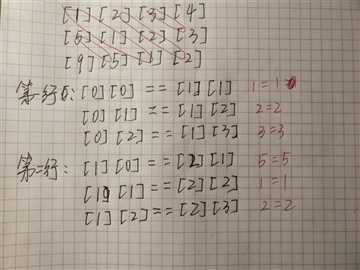 [1] [2] [3] [4]
[5] [1] [2] [3]
[9] [5] [1] [2]
第一行: [0] [0] == [1] [1] 1=1
[0] [1] == [1] [2] 2=2
[0] [2] == [1] [3] 3=3
第二行: [1] [0] == [2] [1] 5=5
[1] [1] == [2] [2] 1=1
[1] [2] == [2] [3] 2=2